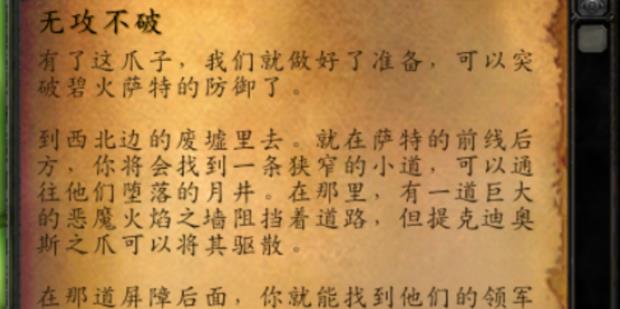 无攻不破
有了这爪子，我们就做好了准备，可以突
破碧火萨特的防御了。
到西北边的废墟里去。就在萨特的前线后
方，你将会找到一条狭窄的小道，可以通
往他们堕落的月井。在那里，有一道巨大
的恶魔火焰之墙阻挡着道路，但提克迪奥
斯之爪可以将其驱散。
在那道屏障后面，你就能找到他们的领军